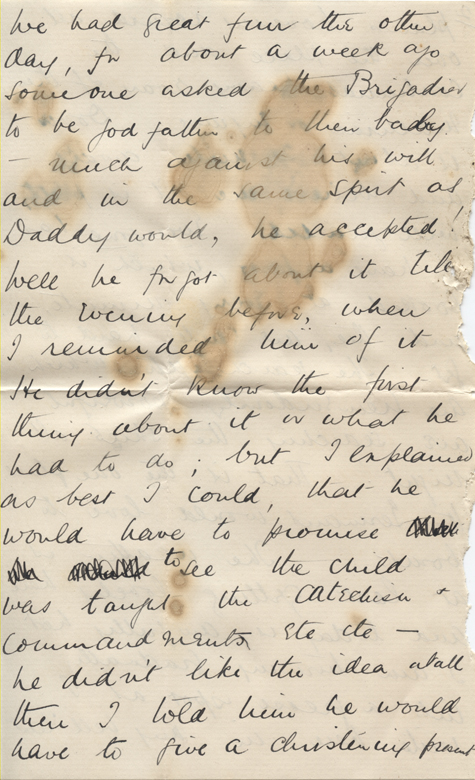 We had great fun the other
day, for about a week ago
someone asked the Brigadier
to be god father to their baby
– much against his will
and in the same spirit as
Daddy would, he accepted!
Well he forgot about it till
the evening before, when
I reminded him of it
He didn't know the first
thing about it or what he
had to do; but I explained
as best I could, that he
would have to promise
to see the child
was taught the Catechism &
Commandments etc etc –
he didn't like the idea atall
then I told him he would
have to give a christening present